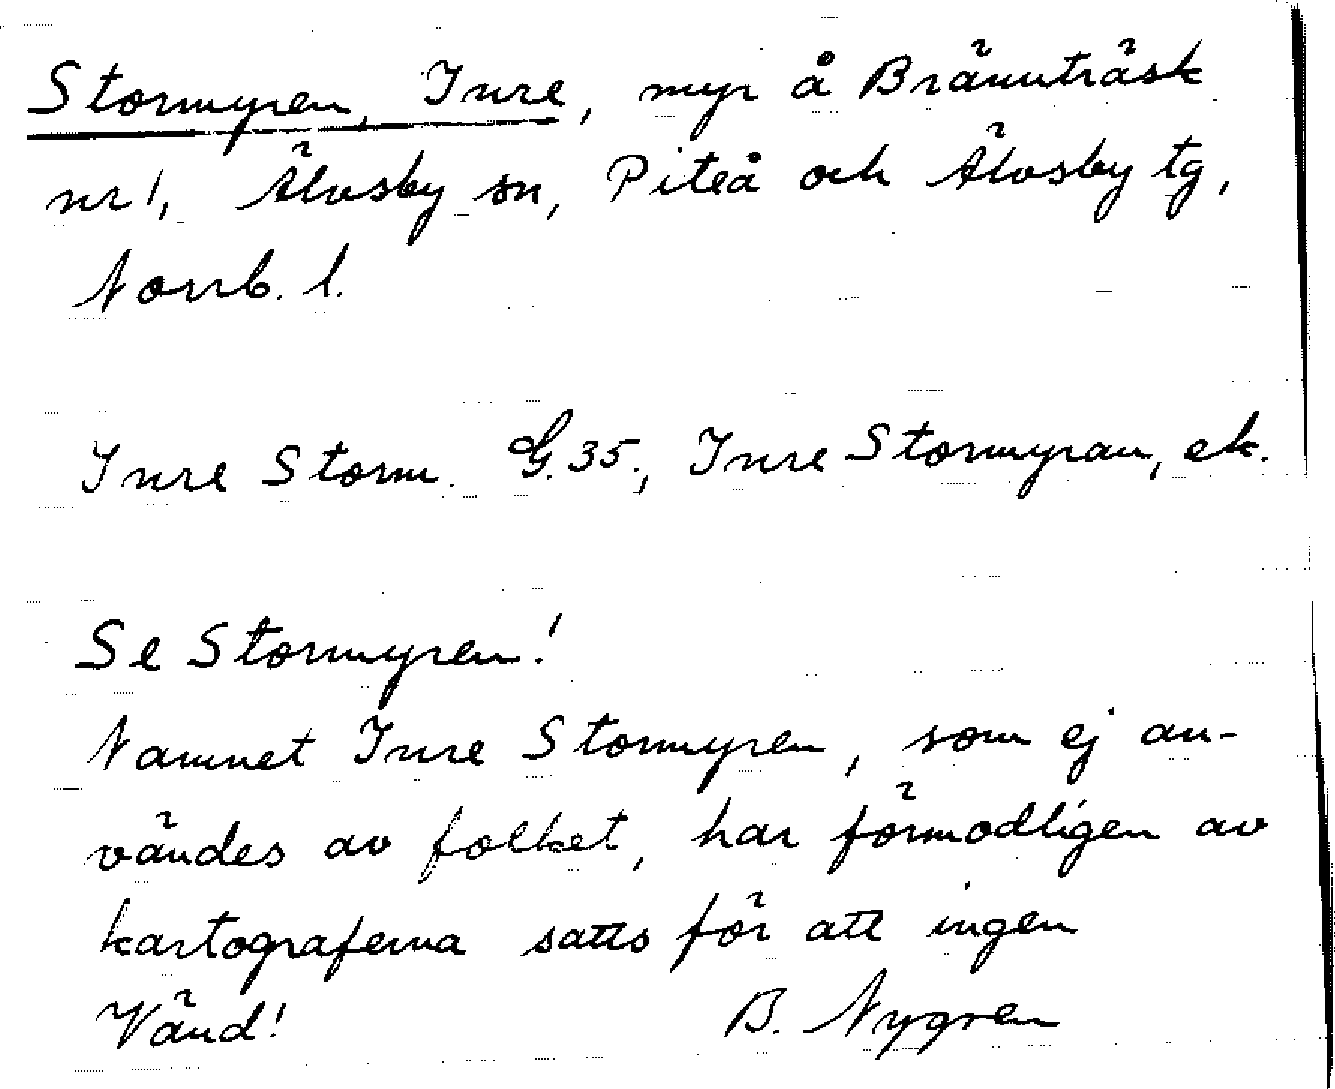 Stormyren, Inre, myr å Brännträsk
nr 1, Älvsby sn, Piteå och Älvsby tg,
Norrb. l.
Inre Storm. G. 35., Inre Stormyran, ek.
Se Stormyren!
Namnet Inre Stormyren, som ej an-
vändes av folket, har förmodligen av
kartograferna satts för att ingen
Vänd! B. Nygren